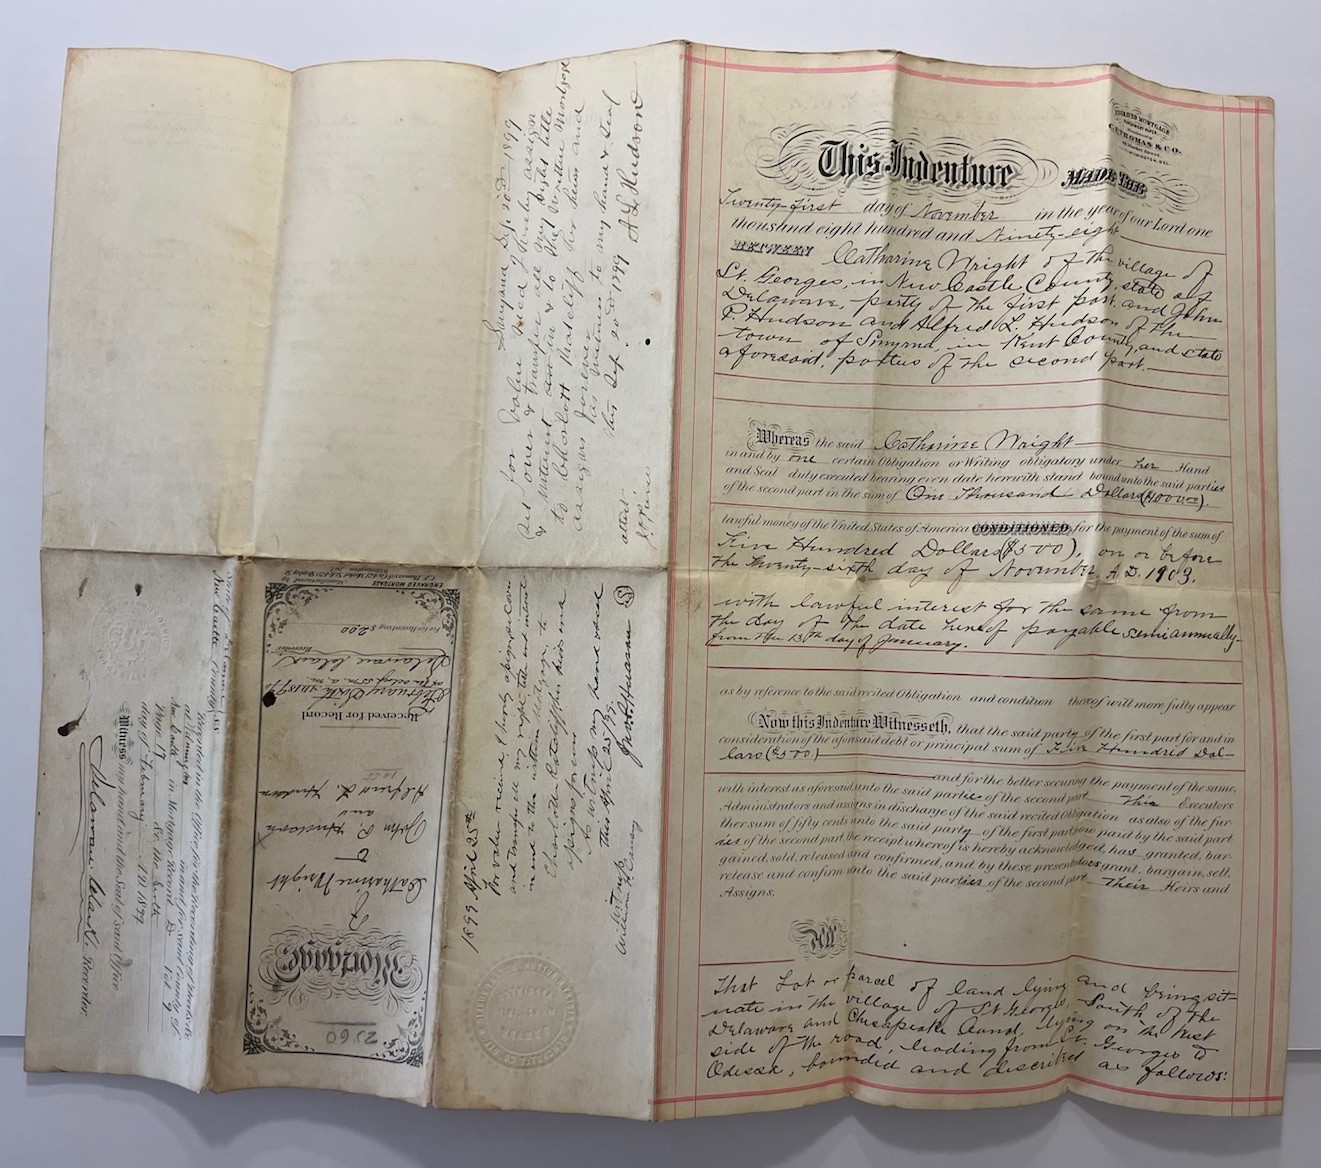 ENGRAVED MORTGAGE
C. F. THOMAS & CO.
This Indenture MADE THE
Twenty-first day of November in the year of our Lord one
thousand eight hundred and Ninety-eight
BETWEEN Catharine Wright of the village of
St. Georges, in New Castle County, state of
Delaware, party of the first part, and John
P. Hudson and Alfred L. Hudson of the
town of Smyrna, in Kent County, and state
aforesaid, parties of the second part.
Whereas the said Catharine Wright
in and by one certain Obligation or Writing obligatory under her Hand
and Seal duly executed bearing even date herewith stand bound unto the said parties
of the second part in the sum of One Thousand Dollars
lawful money of the United States of America CONDITIONED for the payment of the sum of
Five Hundred Dollars ($500), on or before
the Twenty-sixth day of November A.D. 1903.
with lawful interest for the same from
the day of the date hereof payable semiannually
from the 13th day of January.
as by reference to the said recited Obligation and condition thereof will more fully appear
Now this Indenture Witnesseth, that the said party of the first part for and in
consideration of the aforesaid debt or principal sum of Five Hundred Dol-
lars ($500)
and for the better securing the payment of the same,
with interest as aforesaid unto the said parties of the second part their Executors
Administrators and assigns in discharge of the said recited Obligation as also of the fur-
ther sum of fifty cents unto the said party of the first part now paid by the said part
ies of the second part, the receipt whereof is hereby acknowledged, has granted, bar-
gained, sold, released and confirmed, and by these presents does grant, bargain, sell,
release and confirm unto the said parties of the second part their Heirs and
Assigns,
All
That Lot or parcel of land lying and being sit-
uate in the village of St Georges, South of the
Delaware and Chesapeake Canal, lying on the West
side of the road, leading from St. Georges to
Odessa, bounded and described as follows:
Smyrna Sep. 20th 1899
for value rec'd I hereby assign
set over & transfer all my right title
& interest in & to the written Mortgage
to Charlott Ratcliff her heirs and
assigns forever
as witness to my hand & Seal
this Sep. 20th 1899 A L Hudson
attest
1899 April 25th
For value received, I hereby assign, set over
and transfer all my right, title and interest
in and to the within Mortgage, to
Charlotte Ratcliff her heirs and
assigns forever
As witness my hand and seal
this April 25, 1899.
witness
Mortgage
Catharine Wright
to
John P. Hudson
and
Alfred L. Hudson
2560
Received for Record
February Sixth A.D. 1899
Delaware Clark
Recorder
For Recording $2.00
ENGRAVED MORTGAGE
Manufactured by
State of Delaware
New Castle County SS
Recorded in the Office for the Recording of Deeds &c
at Wilmington in and for said County of
New Castle in Mortgage Record D Vol 9
Page 17 &c. the Sixth
day of February A.D. 1899.
Witness my hand and the Seal of said Office
Delaware Clark, Recorder.